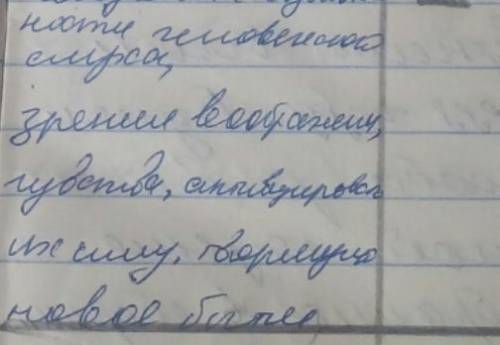 ности человеческого
слуха,
зрения воображения,
чувства, активизировать
их силу, творящую
новое бытие